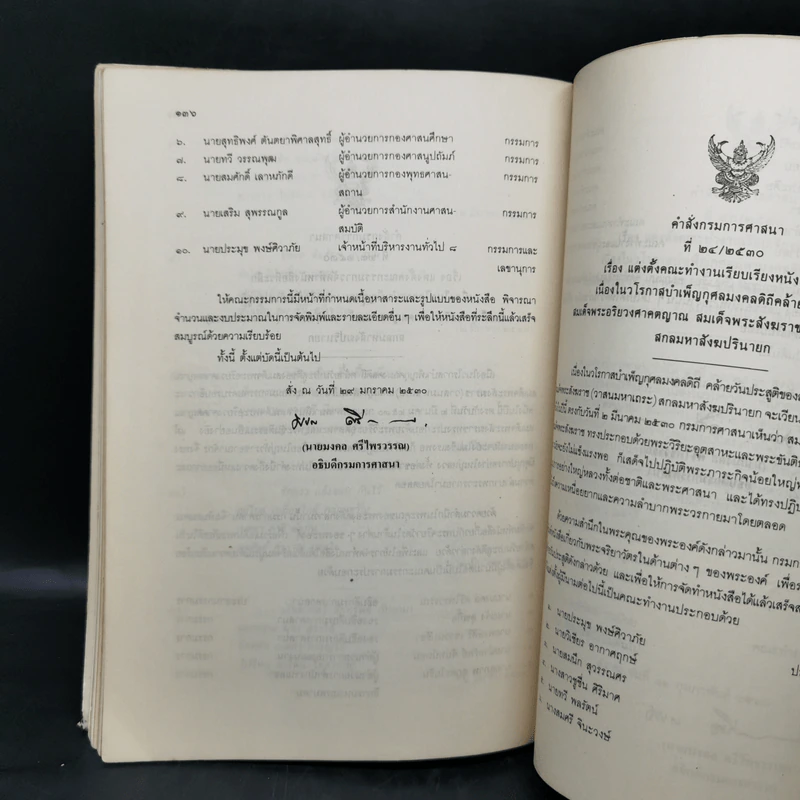 ๑๓๖
๖. นายสุทธิพงศ์ ตันตยาพิศาลสุทธิ์ ผู้อำนวยการกองศาสนศึกษา กรรมการ
๗. นายทวี วรรณพุฒ ผู้อำนวยการกองศาสนูปถัมภ์ กรรมการ
๘. นายสมศักดิ์ เลาหภักดี ผู้อำนวยการกองพุทธศาสน- กรรมการ
สถาน
๙. นายเสริม สุพรรณกูล ผู้อำนวยการสำนักงานศาสน- กรรมการ
สมบัติ
๑๐. นายประมุข พงษ์ศิวาภัย เจ้าหน้าที่บริหารงานทั่วไป ๘ กรรมการและ
เลขานุการ
ให้คณะกรรมการนี้มีหน้าที่กำหนดเนื้อหาสาระและรูปแบบของหนังสือ พิจารณา
จำนวนและงบประมาณในการจัดพิมพ์และรายละเอียดอื่น ๆ เพื่อให้หนังสือที่ระลึกนี้แล้วเสร็จ
สมบูรณ์ด้วยความเรียบร้อย
ทั้งนี้ ตั้งแต่บัดนี้เป็นต้นไป
สั่ง ณ วันที่ ๒๙ มกราคม ๒๕๓๐
(นายมงคล ศรีไพรวรรณ)
อธิบดีกรมการศาสนา
คำสั่งกรมการศาสนา
ที่ ๒๔/๒๕๓๐
เรื่อง แต่งตั้งคณะทำงานเรียบเรียงหนัง
เนื่องในวโรกาสบำเพ็ญกุศลมงคลดิถีคล้าย
สมเด็จพระอริยวงศาคตญาณ สมเด็จพระสังฆราช
สกลมหาสังฆปรินายก
เนื่องในวโรกาสบำเพ็ญกุศลมงคลดิถี คล้ายวันประสูติของส
สกลมหาสังฆปรินายก จะเวียน
ตรงกับวันที่ ๒ มีนาคม ๒๕๓๐ กรมการศาสนาเห็นว่า สม
ทรงประกอบด้วยพระวิริยะอุตสาหะและพระขันติ
ก็เสด็จไปปฏิบัติพระภาระกิจน้อยใหญ่
อย่างใหญ่หลวงทั้งต่อชาติและพระศาสนา และได้ทรงปฏิบ
ความเหนื่อยยากและความลำบากพระวรกายมาโดยตลอด
ด้วยความสำนึกในพระคุณของพระองค์ดังกล่าวมานั้น กรมก
เกี่ยวกับพระจริยาวัตรในด้านต่าง ๆ ของพระองค์ เพื่อ
ประสูติดังกล่าวด้วย และเพื่อให้การจัดทำหนังสือได้แล้วเสร็จ
ผู้มีนามต่อไปนี้เป็นคณะทำงานประกอบด้วย
นายประมุข พงษ์ศิวาภัย
นายวิเชียร อากาศฤกษ์
นายสมนึก สุวรรณศร
นางสาวชูชื่น ศิริมาศ
นายทวี พลรัตน์
นางสมศรี จินะวงษ์